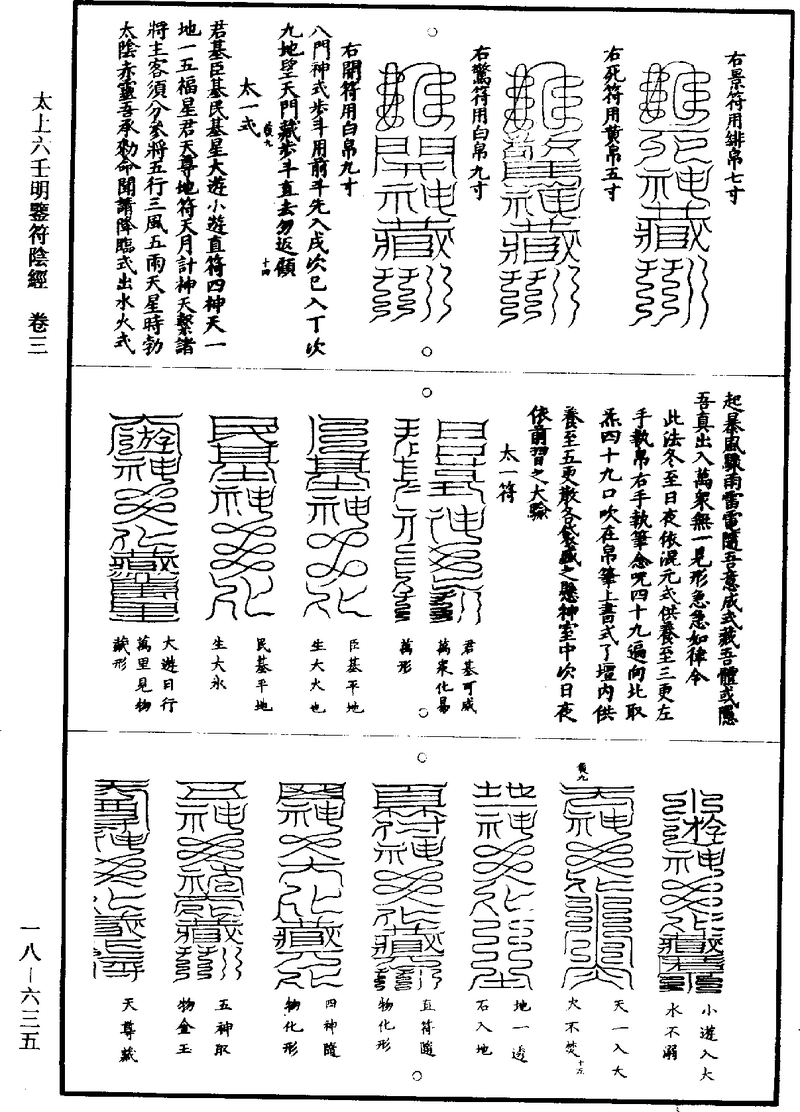 太上六壬明鑒符陰經　卷三
一八—六三五
右景符用緋帛七寸
右死符用黃帛五寸
右驚符用白帛九寸
右開符用白帛九寸
八門神式步斗用前斗先入戌次巳入丁次
九地望天門藏步斗直去勿返顧
十四
黃九
太一式
君基臣基民基星大遊小遊直符四神天一
地一五福星君天尊地符天月計神天繫諸
將主客須分參將五行三風五雨天星時勃
太陰赤靈吾承勑命聞請降臨式出水火式
起暴風驟雨雷電隨吾意成式藏吾體或隱
吾真出入萬衆無一見形急急如律令
此法冬至日夜依混元式供養至三更左
手執帛右手執筆念呪四十九遍向北取
炁四十九口吹在帛筆上書式了壇內供
養至五更散各袋盛之懸神室中次日夜
依前習之大驗
太一符
君基可成
萬衆化易
萬形
臣基平地
生大火也
民基平地
生大水
大遊日行
萬里見物
藏形
小遊入大
水不溺
黃九
天一入大
火不焚
十五
地一透
石入地
直符隨
物化形
四神隨
物化形
五神取
物金玉
天尊藏